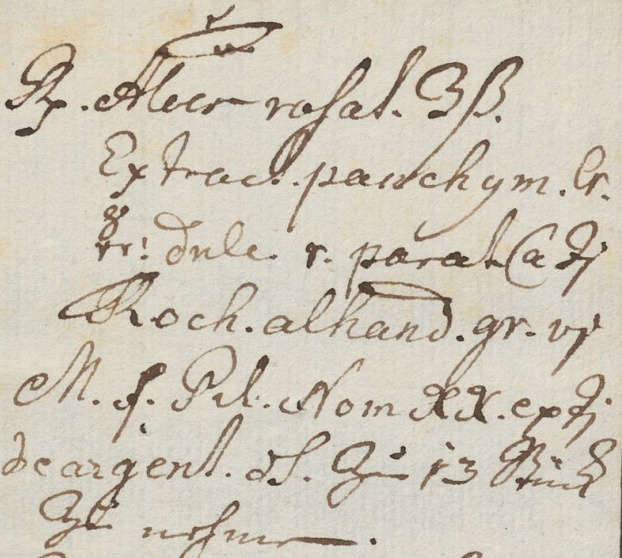 Rx. Aloes rosat. ʒß.
Extract. panchym. Cr.
☿rr! dulc. r. parat (a ℈j
Troch. alhand. gr. vj
M. f. Pil. Nom XX. exp ℈j
de argent. dS. Zu 13 Stück
Zu nehmen.